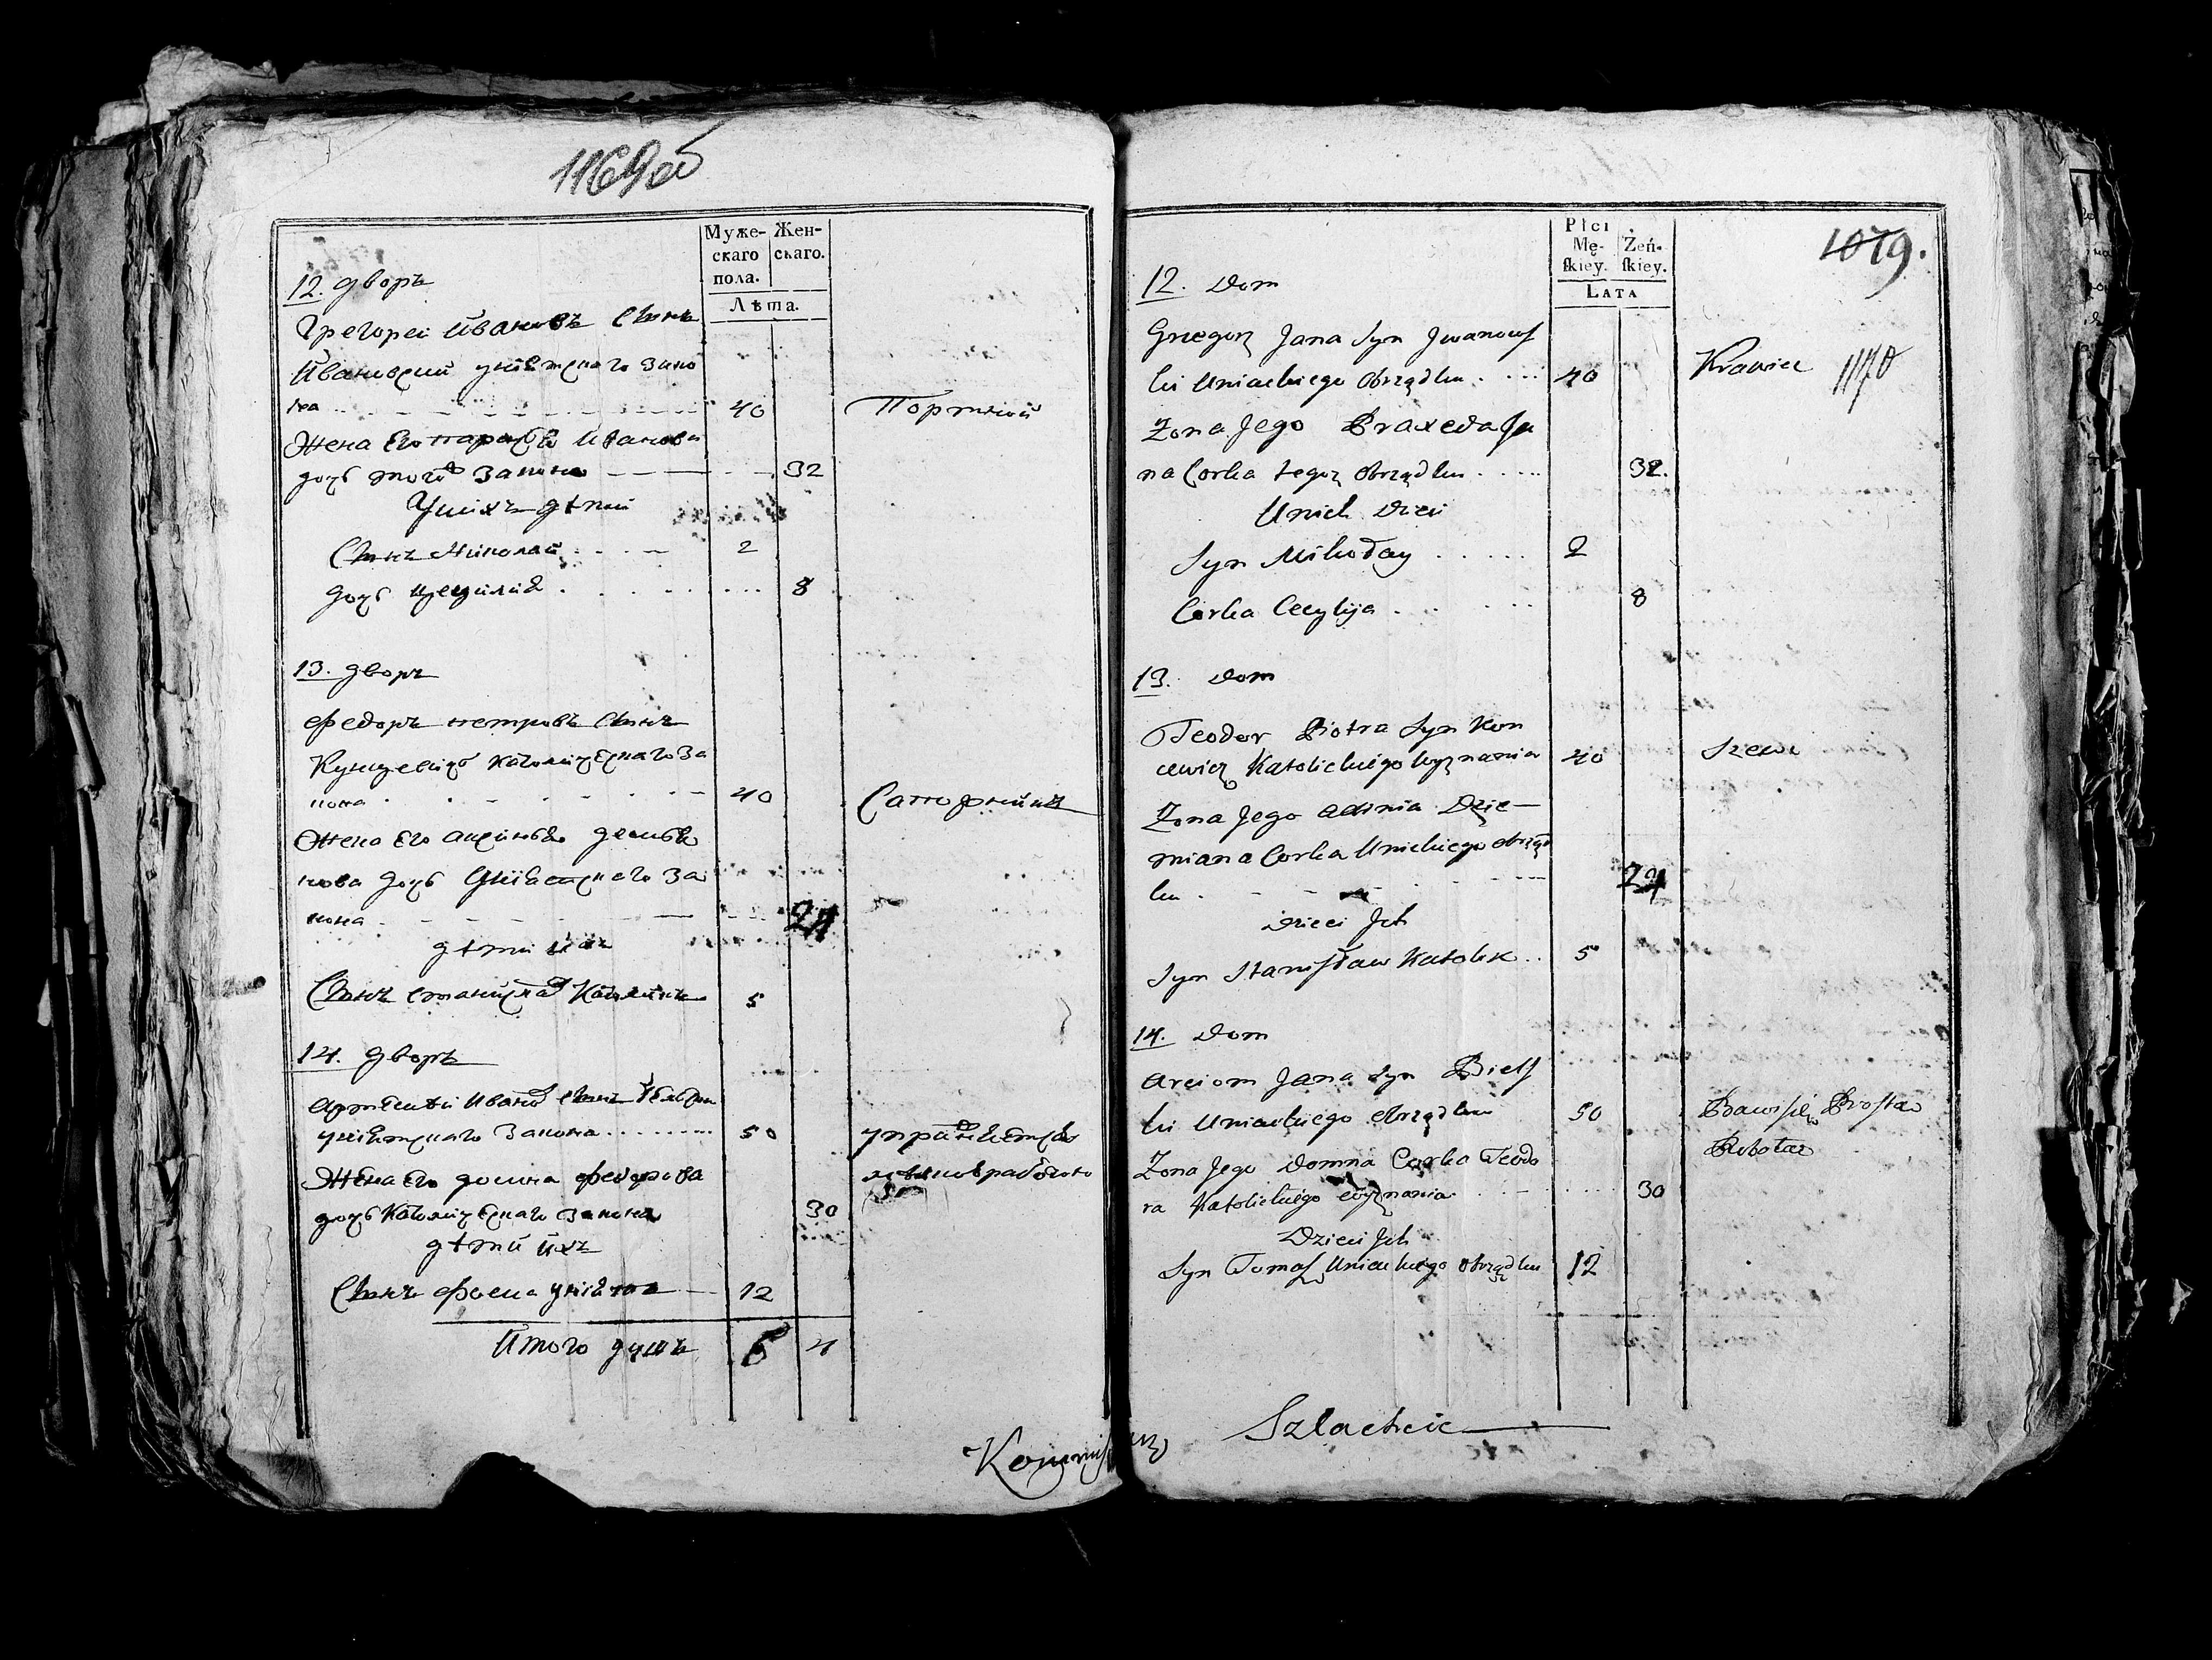 1169об
Муже- Жен-
скаго скаго.
пола.
Лѣта.
12. дворъ
Грегореи Ивановъ Сынъ
Ивановский униятскаго зако
на 40 Портной
Жена Его Иванова
дочь того закона 32
У нихъ дѣтеи
Сынъ Николай 2
дочь Цецилия 8
13. дворъ
Федоръ петровъ Сынъ
католицскаго за
кона 40 Сапожникъ
Жена Его
нова дочь Униатскаго за
кона 24
дѣти ихъ
Сынъ Католикъ 5
14. дворъ
Иванов Сынъ
униятскаго Закона 50
Жена Его домна федорова
дочь Католицскаго Закона 30
дѣти ихъ
Сынъ фома униятъ 12
Итого душъ 6 4
1079.
1170
Płci
Mę- Żeń-
skiey. skiey.
Lata
12. Dom
Grzegorz Jana Syn Jwanows
ki Uniackiego Obrządku 40 Krawiec
Zona Jego Praxeda Ja
na Corka tegoz Obrządku 32.
U nich Dzieci
Syn Mikołay 2
Corka Cecylija 8
13. Dom
Teodor Piotra Syn Kon
cewicz Katolickiego wyznania 40 Szewc
Zona Jego Dzie
miana Corka Unickiego obrząd
ku 24
Dzieci Jch
Syn Stanisław Katolik 5
14. Dom
Arciom Jana Syn Biels
ki Uniackiego Obrządku 50 Bawi się Prostą
Robotą
Zona Jego Domna Corka Teodo
ra Katolickiego wyznania 30
Dzieci Jch
Syn Tomasz Uniackiego Obrządku 12
Szlachcic